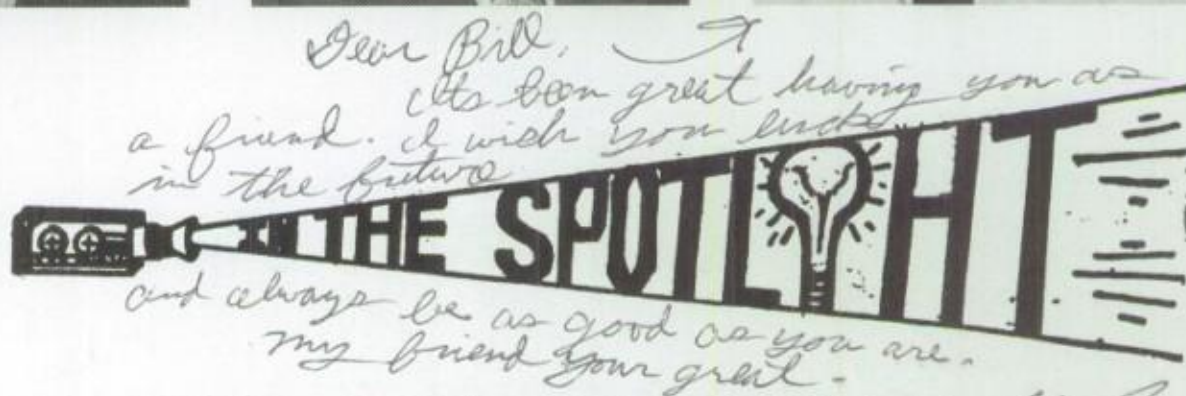 Dear Bill,
Its been great having you as
a friend. I wish you luck
in the future
IN THE SPOTLIGHT
and always be as good as you are.
my friend your great.